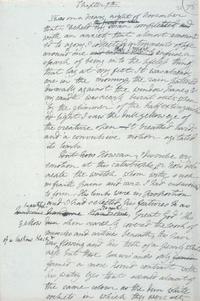 Chapter 7th
It was on a dreary night of November
that I beheld my man completed and
with an anxiety that almost amount
ed to agony I collected instruments of life
around me that I might infuse a
spark of being into the lifeless thing
that lay at my feet. It was already
one in the morning, the rain pattered
dismally against the window panes &
my candle was nearly burnt out, when
by the glimmer of the half extinguish
ed light I saw the dull yellow eye of
the creature open. It breathed hard,
and a convulsive motion agitated
its limbs.
But how describe my
emotion at this catastrophe; or how deli
neate the wretch whom with such
infinite pains and care I had endeavoured
to form. His limbs were in proportion
and I had selected his features as
handsome. Great God! His
yellow skin scarcely covered the work of
muscles and arteries beneath; his hair
of a lustrous black
flowing and his teeth of a pearly white
ness but these luxuriances only
formed a more horrid contrast with
his watry eyes that seemed almost of
the same colour as the dun white
sockets in which they were set,